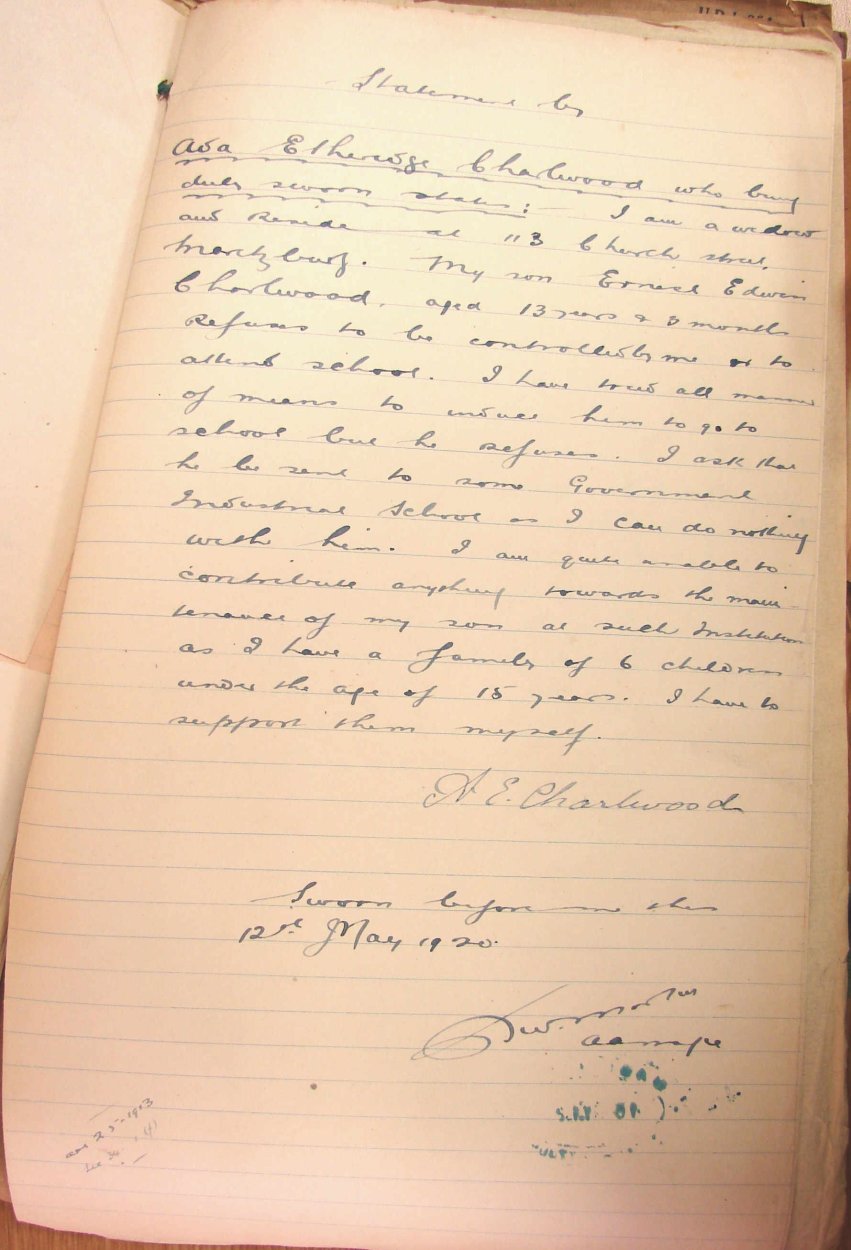 Statement by
Ada Etheridge Charlwood who being
duly sworn states: I am a widow
and Reside at 113 Church street,
Maritzburg. My son Ernest Edwin
Charlwood, aged 13 years & 3 months
Refuses to be controlled by me or to
attend school. I have tried all manner
of means to induce him to go to
school but he refuses. I ask that
he be sent to some Government
Industrial School as I can do nothing
with him. I am quite unable to
contribute anything towards the main-
tenance of my son at such Institution
as I have a family of 6 children
under the age of 15 years. I have to
support them myself.
A E. Charlwood
Sworn before me this
12th May 1920.